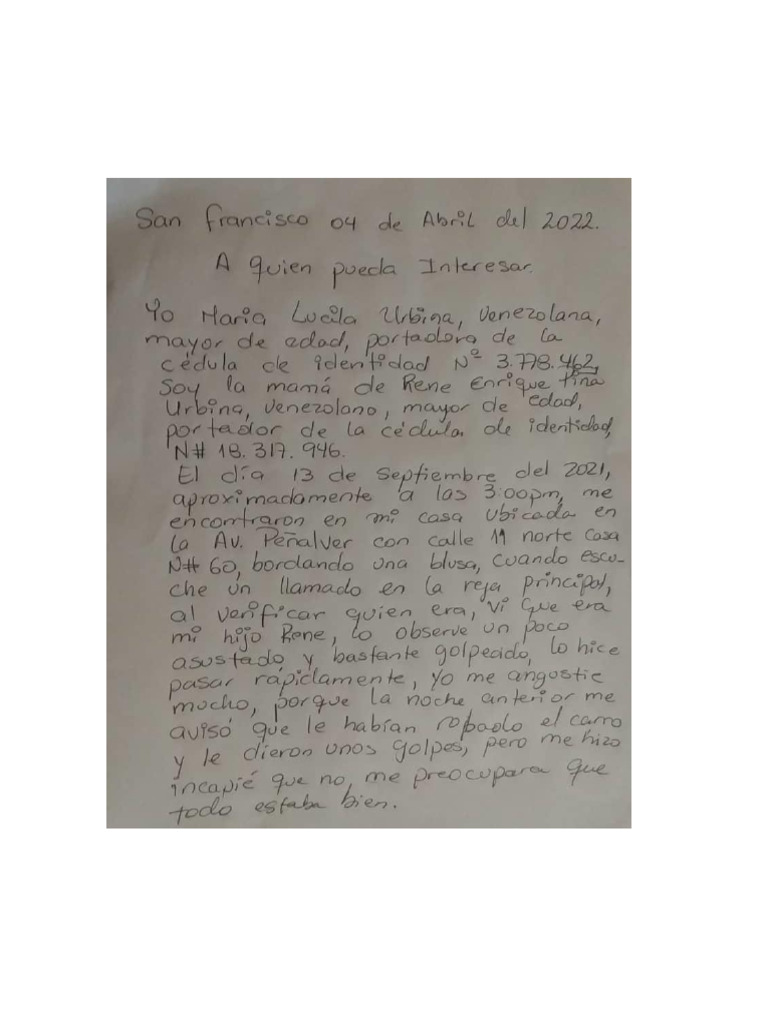 San francisco 04 de Abril del 2022.
A quien pueda Interesar.
Yo Maria Lucila Urbina, venezolana,
mayor de edad, portadora de la
cédula de identidad Nº 3.778.462,
Soy la mamá de Rene Enrique Piña
Urbina, venezolano, mayor de edad,
portador de la cédula de identidad,
N# 18.317.946.
El día 13 de septiembre del 2021,
aproximadamente a las 3:00pm, me
encontraron en mi casa ubicada en
la Av. Peñalver con calle 11 norte casa
N# 60, bordando una blusa, cuando escu-
che un llamado en la reja principal,
al verificar quien era, vi que era
mi hijo Rene, lo observe un poco
asustado y bastante golpeado, lo hice
pasar rápidamente, yo me angustie
mucho, porque la noche anterior me
avisó que le habían robado el carro
y le dieron unos golpes, pero me hizo
incapié que no, me preocupara que
todo estaba bien.